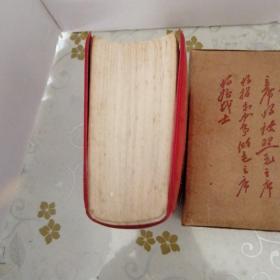 席的话照毛主席
的指示办事做毛主席
的好战士